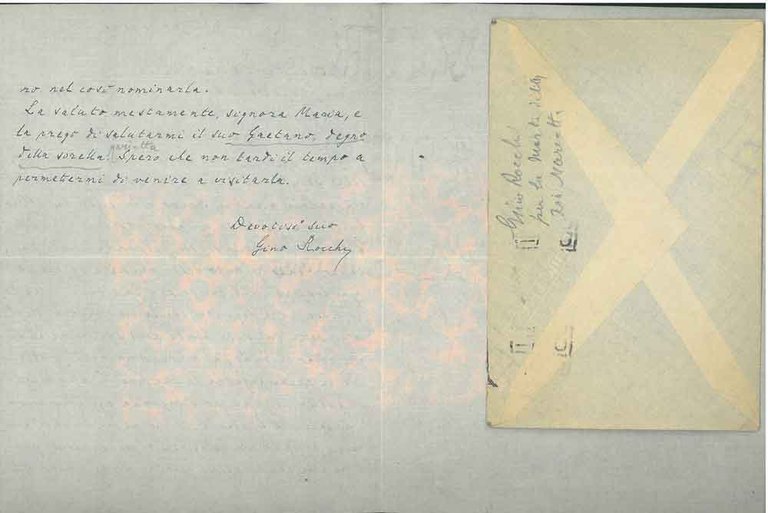 no nel così nominarla.
La saluto mestamente, signora Maria, e
la prego di salutarmi il suo Gaetano, degno
della sorella Marietta. Spero che non tardi il tempo a
permettermi di venire a visitarla.
Devotiss° suo
Gino Rocchi
Gino Rocchi
per la morte della
Marietta